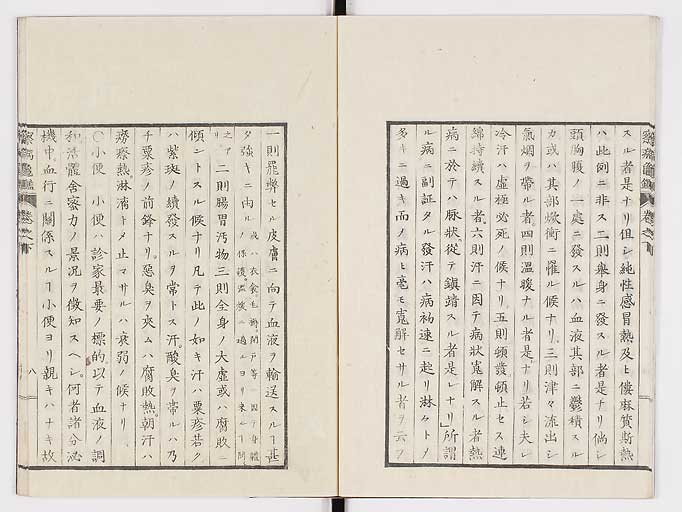 察病亀鑑 巻之下
スル者是ナリ但シ純性感冒熱及ヒ僂麻質斯熱
ハ此例ニ非ス二則挙身ニ發スル者是ナリ倘シ
頭胸腹ノ一處ニ發スルハ血液其部ニ鬱積スル
カ或ハ其部焮衝ニ罹ル候ナリ三則津々流出シ
氣烟ヲ帯ル者四則溫暖ナル者是ナリ若シ夫レ
冷汗ハ虚極必死ノ候ナリ五則頓發頓止セス連
綿持續スル者六則汗ニ因テ病狀寬解スル者熱
病ニ於テハ脉狀從テ鎮靖スル者是レナリ所謂
ル病ニ副証タル發汗ハ病初速ニ起リ淋々トメ
多キニ過キ而ノ病ヒ毫モ寬解セサル者ヲ云フ
一則罷弊セル皮膚ニ向テ血液ヲ輸送スルヿ甚
タ強キニ由ル
二則腸胃汚物三則全身ノ大虚或ハ腐敗ニ
傾ントスル候ナリ凡テ此ノ如キ汗ハ粟疹若ク
ハ紫斑ノ續發スルヲ常トス汗酸臭ヲ帯ルハ乃
チ粟疹ノ前鋒ナリ惡臭ヲ夾ムハ腐敗熱朝汗ハ
癆瘵熱淋漓トメ止マサルハ衰弱ノ候ナリ
○小便 小便ハ診家最要ノ標的以テ血液ノ調
和活體舎密力ノ景況ヲ徴知スヘシ何者諸分泌
機中血行ニ關係スルヿ小便ヨリ親キハナキ故
察病亀鑑 巻之下 八